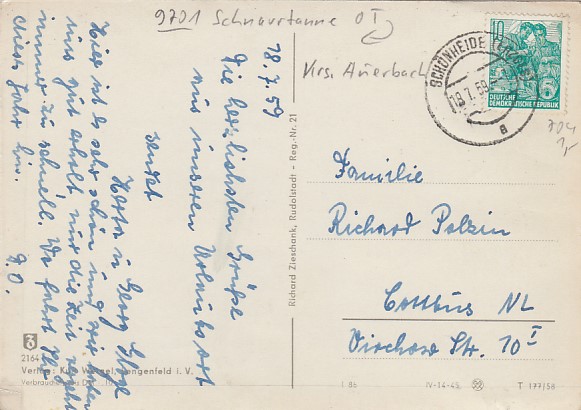 9701 Schnarrtanne OT
Krs. Auerbach
SCHÖNHEIDE
18.7.59
a
10
DEUTSCHE
DEMOKRATISCHE REPUBLIK
704
1,-
18.7.59
Die herzlichsten Grüße
aus unserem Urlaubsort
sendet
Herta u. Georg
Hier ist es sehr schön und wir haben
uns gut erholt nur die Zeit vergeht
immer zu schnell. Wo fahrt Ihr
dieses Jahr hin.
D.O.
Familie
Richard Polzin
Cottbus NL
Virchow Str. 10 I
Richard Zieschank, Rudolstadt - Reg.-Nr. 21
2164
Verlag: Kurt Wetzel, Lengenfeld i. V.
IV-14-45
T 177/58